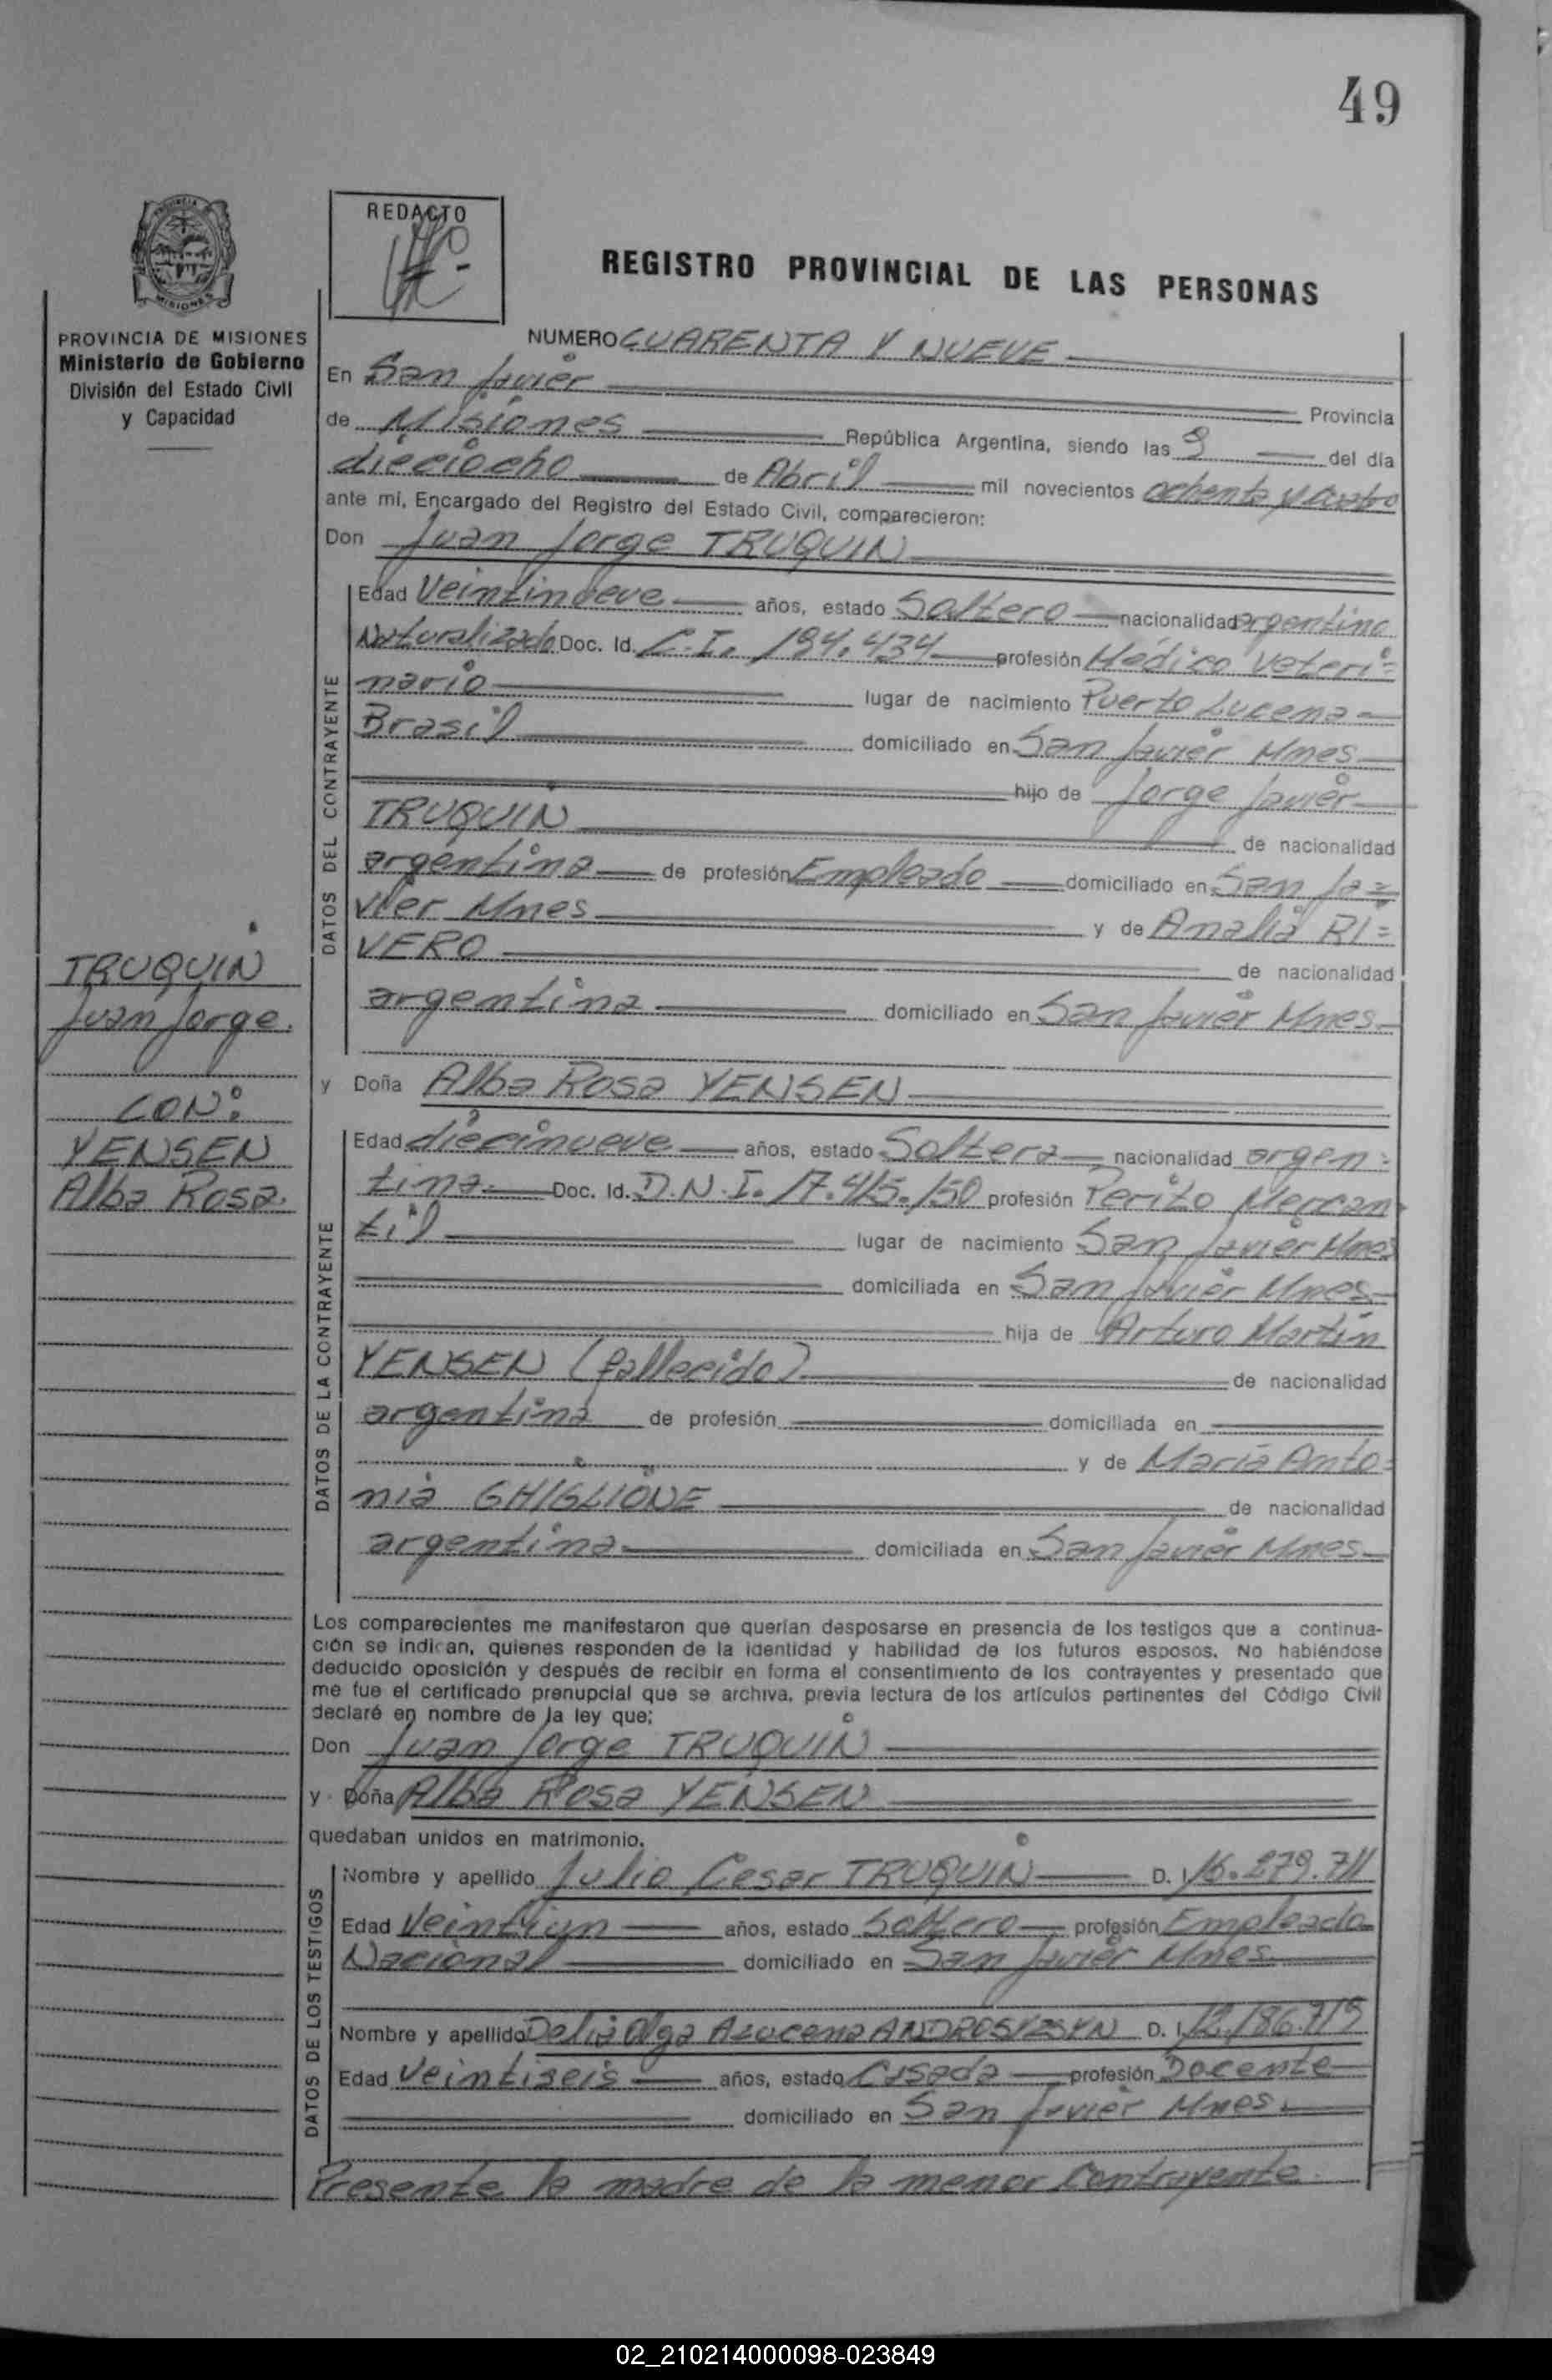 49
REDACTO
REGISTRO PROVINCIAL DE LAS PERSONAS
PROVINCIA DE MISIONES
Ministerio de Gobierno
División del Estado Civil
y Capacidad
NUMERO CUARENTA Y NUEVE
En San Javier Provincia
de Misiones República Argentina, siendo las 9 del día
dieciocho de Abril mil novecientos ochenta y cuatro
ante mí, Encargado del Registro del Estado Civil, comparecieron:
Don Juan Jorge TRUQUIN
DATOS DEL CONTRAYENTE
Edad Veintinueve años, estado Soltero nacionalidad argentino
Naturalizado Doc. Id. C.I. 194.434 profesión Médico Veteri=
nario lugar de nacimiento Puerto Lucena
Brasil domiciliado en San Javier Mnes
hijo de Jorge Javier
TRUQUIN de nacionalidad
argentina de profesión Empleado domiciliado en San Ja=
vier Mnes y de Analia RI=
VERO de nacionalidad
argentina domiciliado en San Javier Mnes
TRUQUIN
Juan Jorge.
CON:
YENSEN
Alba Rosa.
y Doña Alba Rosa YENSEN
DATOS DE LA CONTRAYENTE
Edad diecinueve años, estado Soltera nacionalidad argen=
tina Doc. Id. D.N.I. 17.415.150 profesión Perito Mercan
til lugar de nacimiento San Javier Mnes
domiciliada en San Javier Mnes
hija de Arturo Martín
YENSEN (fallecido) de nacionalidad
argentina de profesión domiciliada en
y de María Anto=
nia GHIGLIONE de nacionalidad
argentina domiciliada en San Javier Mnes
Los comparecientes me manifestaron que querían desposarse en presencia de los testigos que a continua-
ción se indican, quienes responden de la identidad y habilidad de los futuros esposos. No habiéndose
deducido oposición y después de recibir en forma el consentimiento de los contrayentes y presentado que
me fue el certificado prenupcial que se archiva, previa lectura de los artículos pertinentes del Código Civil
declaré en nombre de la ley que;
Don Juan Jorge TRUQUIN
y Doña Alba Rosa YENSEN
quedaban unidos en matrimonio.
DATOS DE LOS TESTIGOS
Nombre y apellido Julio Cesar TRUQUIN D. I. 16.279.711
Edad Veintiun años, estado Soltero profesión Empleado
Nacional domiciliado en San Javier Mnes
Nombre y apellido Delia Olga Azucena D. I.
Edad Veintiseis años, estado Casada profesión Docente
domiciliado en San Javier Mnes.
Presente la madre de la menor contrayente
02_210214000098-023849